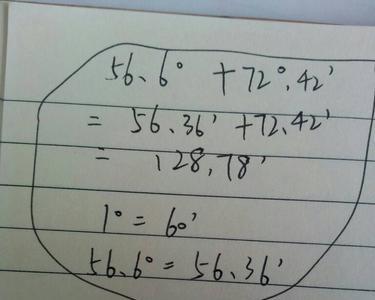 56、6° + 72°、42'
= 56、36' + 72、42'
= 128,78'
1° = 60'
56、6° = 56、36'